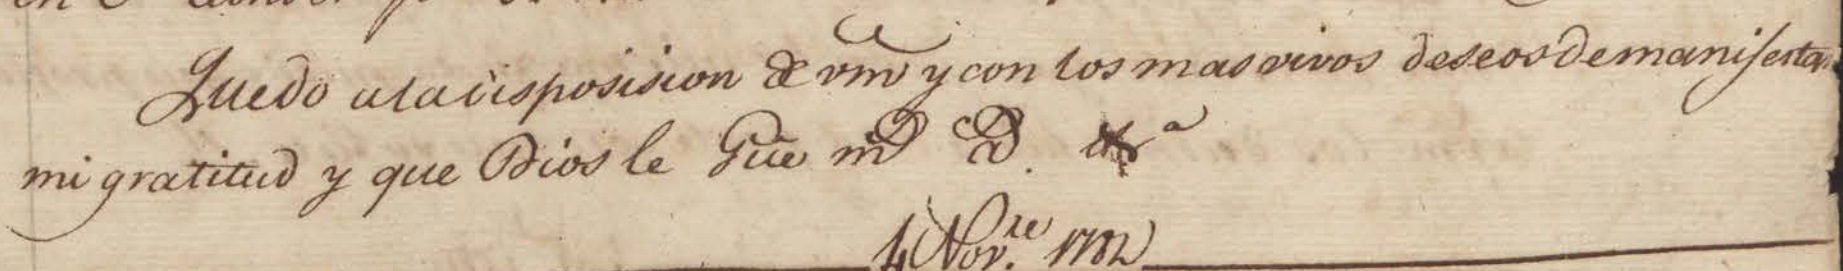 Quedo a la disposision de vm y con los mas vivos deseos de manifestar
mi gratitud y que Dios le Gue m.s
4 Nov.re 1782